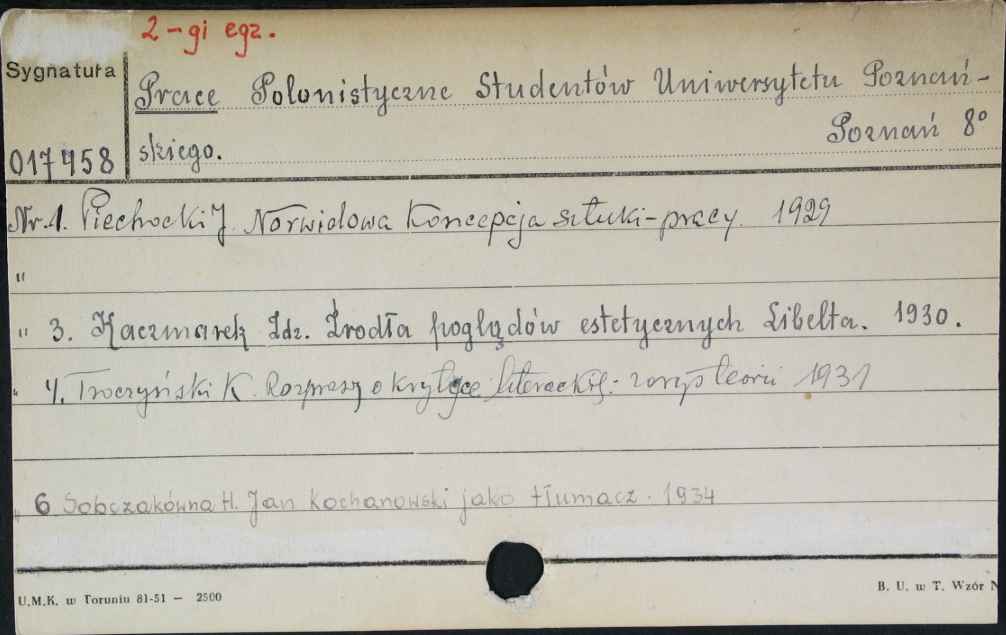 2-gi egz.
Sygnatura
Prace Polonistyczne Studentów Uniwersytetu Poznań-
Poznań 8°
017458 skiego.
Nr. 1. Piechocki J. Norwidowa koncepcja sztuki-pracy. 1929
"
" 3. Kaczmarek Zdz. Źrodła poglądów estetycznych Libelta. 1930.
" 4. Troczyński K. Rozprawa o krytyce literackiej: zarys teorii 1931
" 6 Sobczakówna H. Jan Kochanowski jako tłumacz. 1934
U.M.K. w Toruniu 81-51 — 2500
B. U. w T. Wzór N